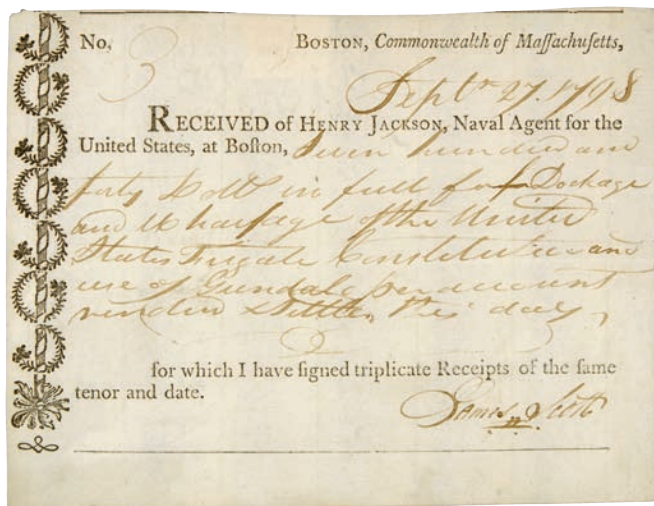 No. 3 BOSTON, Commonwealth of Maſſachuſetts,
Septr 27. 1798
RECEIVED of HENRY JACKSON, Naval Agent for the
United States, at Boſton, Seven hundred and
forty Dolls in full for Dockage
and Wharfage of the United
States Frigate Constitution and
use of Gundalo pr account
rendered & settled this day,
for which I have ſigned triplicate Receipts of the ſame
tenor and date.
James Scott